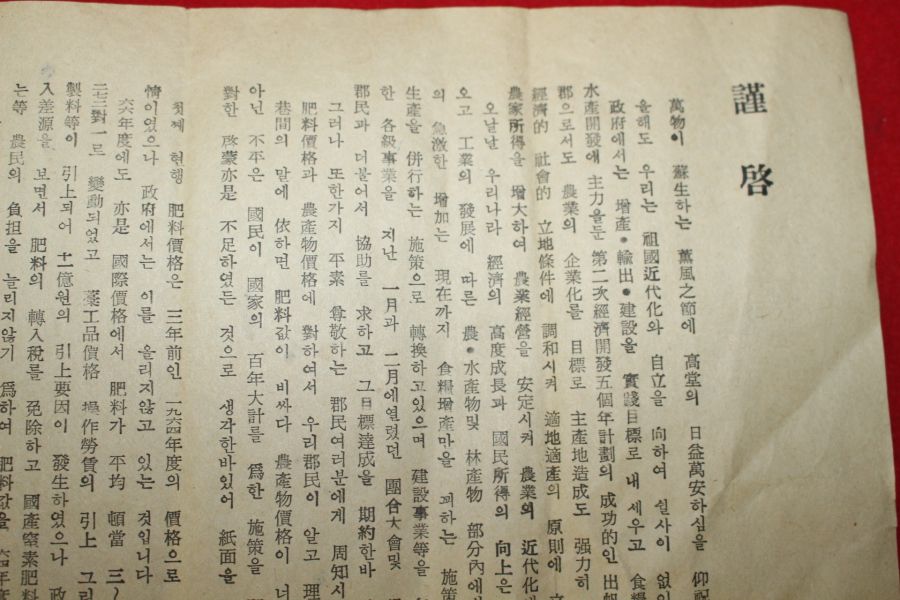 謹啓
萬物이 蘇生하는 薰風之節에 高堂의 日益萬安하심을 仰祝
올해도 우리는 祖國近代化와 自立을 向하여 쉴사이 없이
政府에서는 增產•輸出•建設을 實踐目標로 내 세우고 食糧
水產開發에 主力을둔 第二次經濟開發五個年計劃의 成功的인 出帆
郡으로서도 農業의 企業化를 目標로 主產地造成도 强力히
經濟的 社會的 立地條件에 調和시켜 適地適產의 原則에
農家所得을 增大하여 農業經營을 安定시켜 農業의 近代化에
오늘날 우리나라 經濟의 高度成長과 國民所得의 向上은
오고 工業의 發展에 따른 農•水產物및 林產物 部分內에서
의 急激한 增加는 現在까지 食糧增產만을 꾀하는 施策
生產을 併行하는 施策으로 轉換하고있으며 建設事業等을
한 各級事業을 지난 一月과 二月에열렸던 團合大會및
郡民과 더불어서 協助를 求하고 그目標達成을 期約한바
그러나 또한가지 平素 尊敬하는 郡民여러분에게 周知시
肥料價格과 農產物價格에 對하여서 우리郡民이 알고 理
巷間의 말에 依하면 肥料값이 비싸다 農產物價格이 너
아닌 不平은 國民이 國家의 百年大計를 爲한 施策을
對한 啓蒙亦是 不足하였든 것으로 생각한바있어 紙面을
첫째 現行 肥料價格은 三年前인 一九六四年度의 價格으로
情이였으나 政府에서는 이를 올리지않고 있는 것입니다
六六年度에도 亦是 國際價格에서 肥料가 平均 頓當 三
二七三對一로 變動되었고 藁工品價格 操作勞賃의 引上 그리
製料等이 引上되어 十一億원의 引上要因이 發生하였으나 政
入差源을 보면서 肥料의 轉入稅를 免除하고 國產窒素肥料
는等 農民의 負担을 늘리지않기 爲하여 肥料값을 六四年度